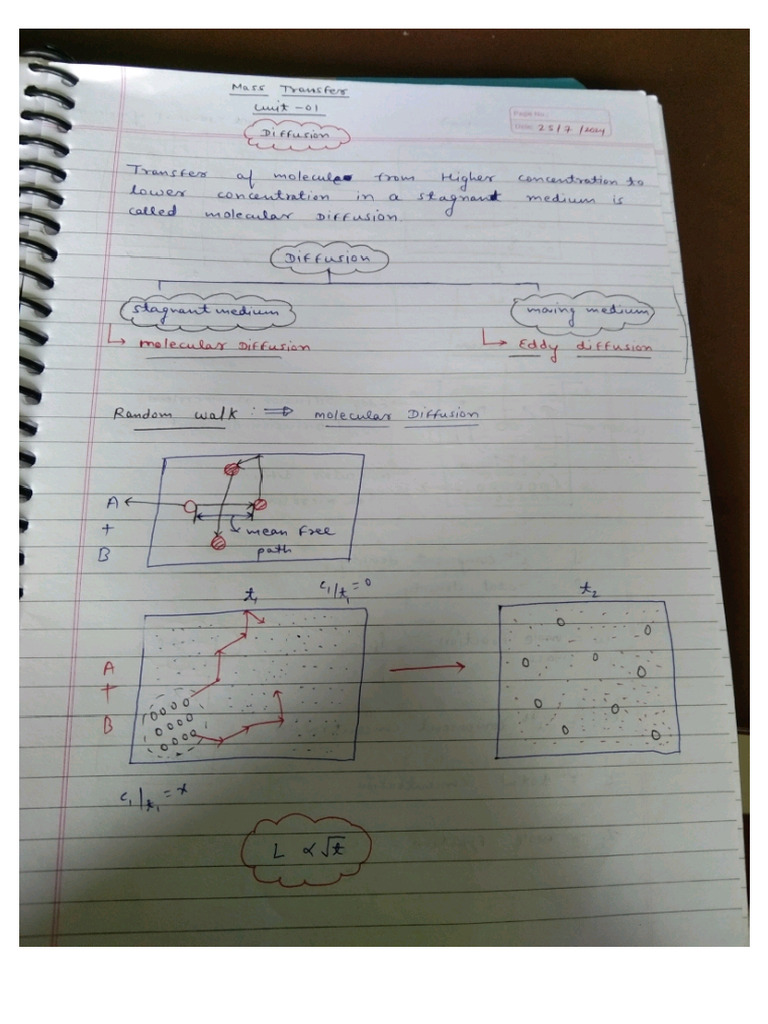 Mass Transfer
Unit - 01
Diffusion
Page No.:
Date: 25/7/2024
Transfer of molecule from Higher concentration to
lower concentration in a stagnant medium is
called molecular Diffusion.
Diffusion
stagnant medium
moving medium
↳ molecular Diffusion
↳ Eddy diffusion
Random walk : ⇒ molecular Diffusion
A
+
B
mean free
path
t₁
c₁/t₁ = 0
t₂
A
+
B
c₁/t₁ = x
L ∝ √t